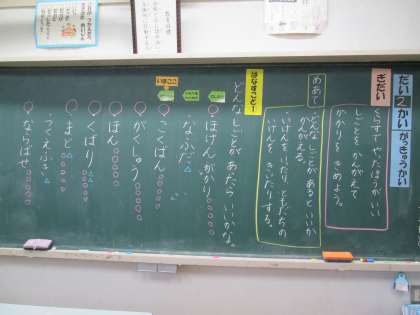 だい2かいがっきゅうかい
ぎだい
どうすずやったほうがいい
しごとをかんがえて
かかりをきめよう。
めあて
どんなしごとがあるといいか
かんがえる。
いけんをいったり、ともだちの
いけんをきいたりする。
はなすこと1
どんなしごとがあったらいいかな。
ほけんがかり
なふだ
いまここ
こくばん
がくしゅう
ほん
くばり
まど
つくえふき
ならばせ